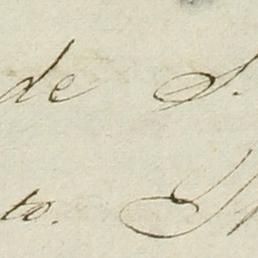 de S.
to.